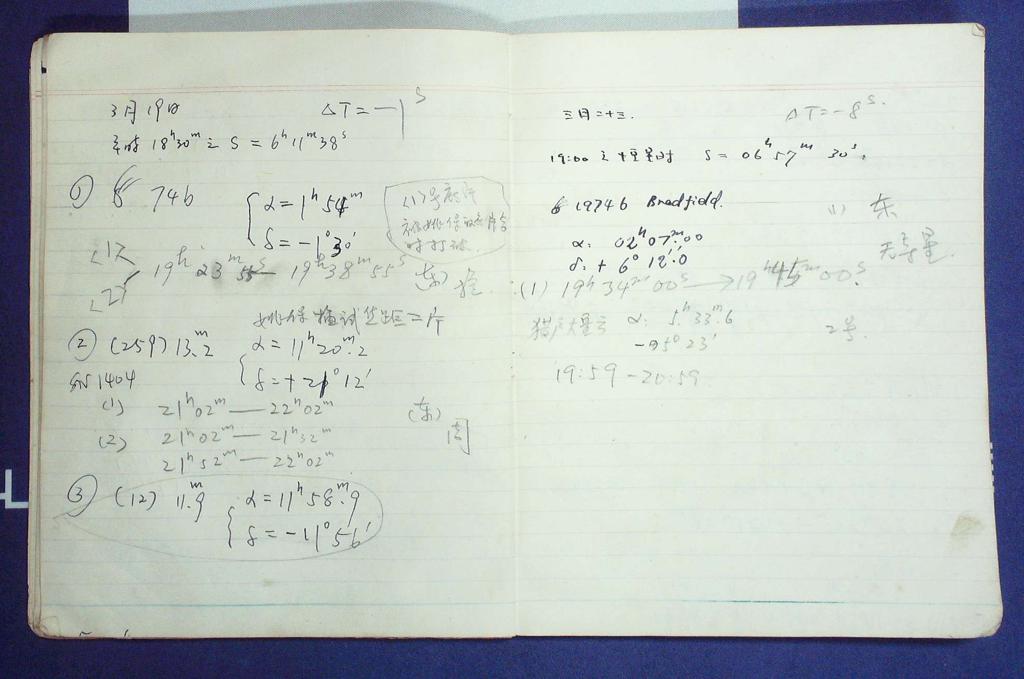 3月19日 ΔT=-1ˢ
18ʰ30ᵐ之 S=6ʰ11ᵐ38ˢ
① 74b α=1ʰ54ᵐ
δ=-1°30′
(1)号
(1)
19ʰ23ᵐ55ˢ — 19ʰ38ᵐ55ˢ (东)
(2)
② (259) 13ᵐ.2 α=11ʰ20ᵐ.2
1404 δ=+21°12′
(1) 21ʰ02ᵐ — 22ʰ02ᵐ (东)
(2) 21ʰ02ᵐ — 21ʰ32ᵐ 周
21ʰ52ᵐ — 22ʰ02ᵐ
③ (12) 11ᵐ.9 α=11ʰ58ᵐ.9
δ=-11°56′
三月二十三. ΔT=-8ˢ.
19:00 之恒星时 S=06ʰ57ᵐ30ˢ.
1974b Bradfield. (1) 东
α: 02ʰ07ᵐ.00
δ: +6°12′.0 无导星.
(1) 19ʰ34ᵐ00ˢ → 19ʰ45ᵐ00ˢ.
猎户大星云 α: 5ʰ33ᵐ.6 2号.
-05°23′
19:59 - 20:59